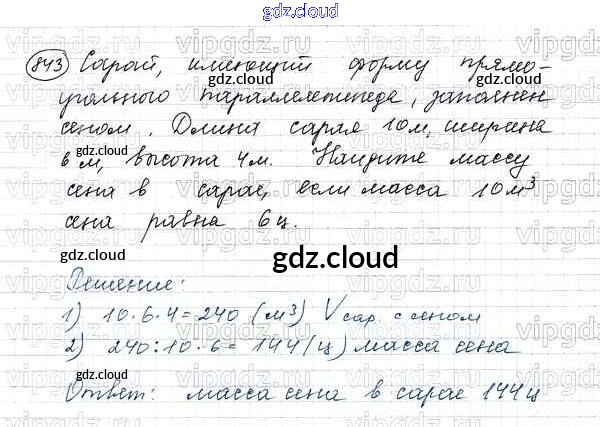 gdz.cloud
843 Сарай, имеющий форму прямо-
угольного параллелепипеда, заполнен
сеном. Длина сарая 10 м, ширина
6 м, высота 4 м. Найдите массу
сена в сарае, если масса 10 м³
сена равна 6 ц.
gdz.cloud
Решение:
1) 10·6·4=240 (м³) V сар. с сеном
2) 240:10·6= 144 (ц) масса сена
Ответ: масса сена в сарае 144 ц